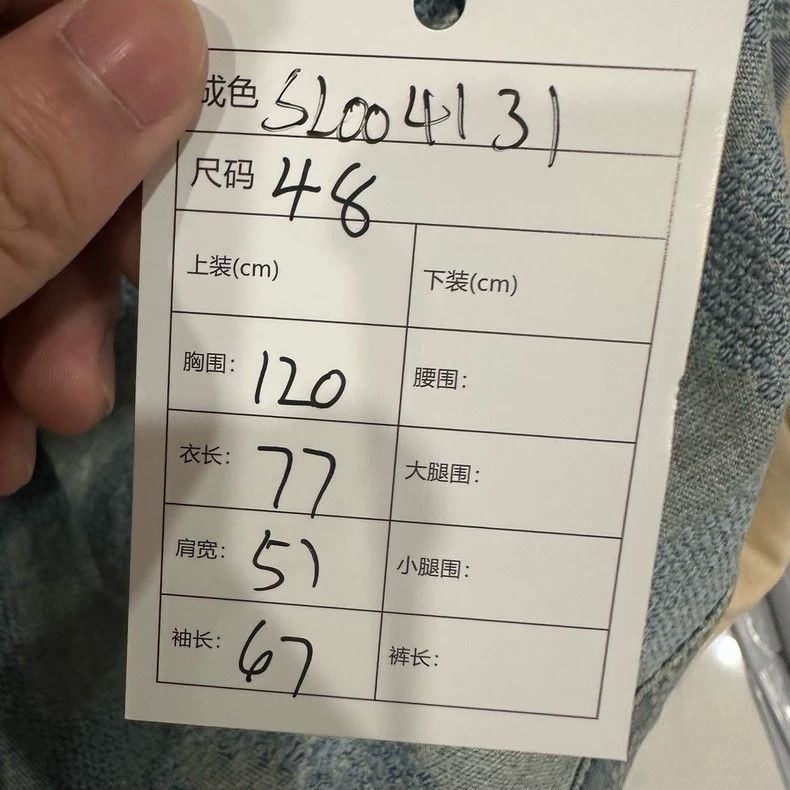 成色 SL004131
尺码 48
上装(cm) 下装(cm)
胸围: 120 腰围:
衣长: 77 大腿围:
肩宽: 51 小腿围:
袖长: 67 裤长: